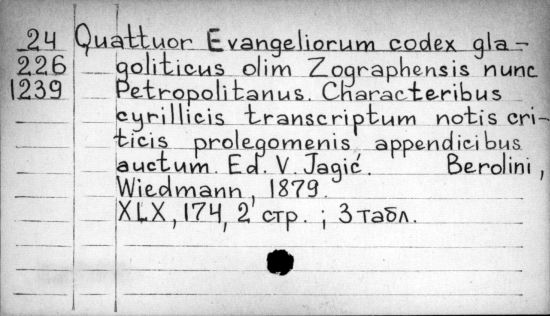 24 Quattuor Evangeliorum codex gla-
226 goliticus olim Zographensis nunc
1239 Petropolitanus. Characteribus
cyrillicis transcriptum notis cri-
ticis prolegomenis appendicibus
auctum. Ed. V. Jagić. Berolini,
Wiedmann, 1879.
XLX, 174, 2 стр. ; 3 табл.